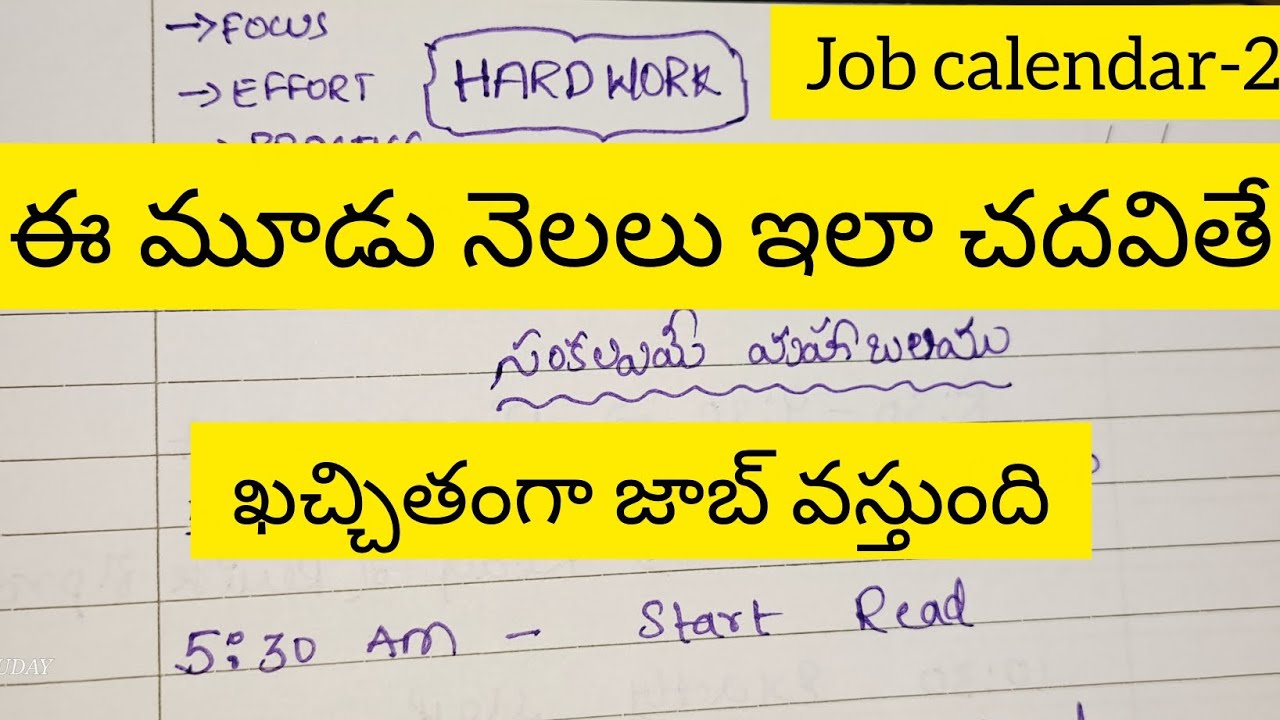 →FOCUS
→EFFORT
HARD WORK
Job calendar-2
ఈ మూడు నెలలు ఇలా చదవితే
సంకల్పమే మహాబలము
ఖచ్చితంగా జాబ్ వస్తుంది
5:30 AM - Start Read
UDAY